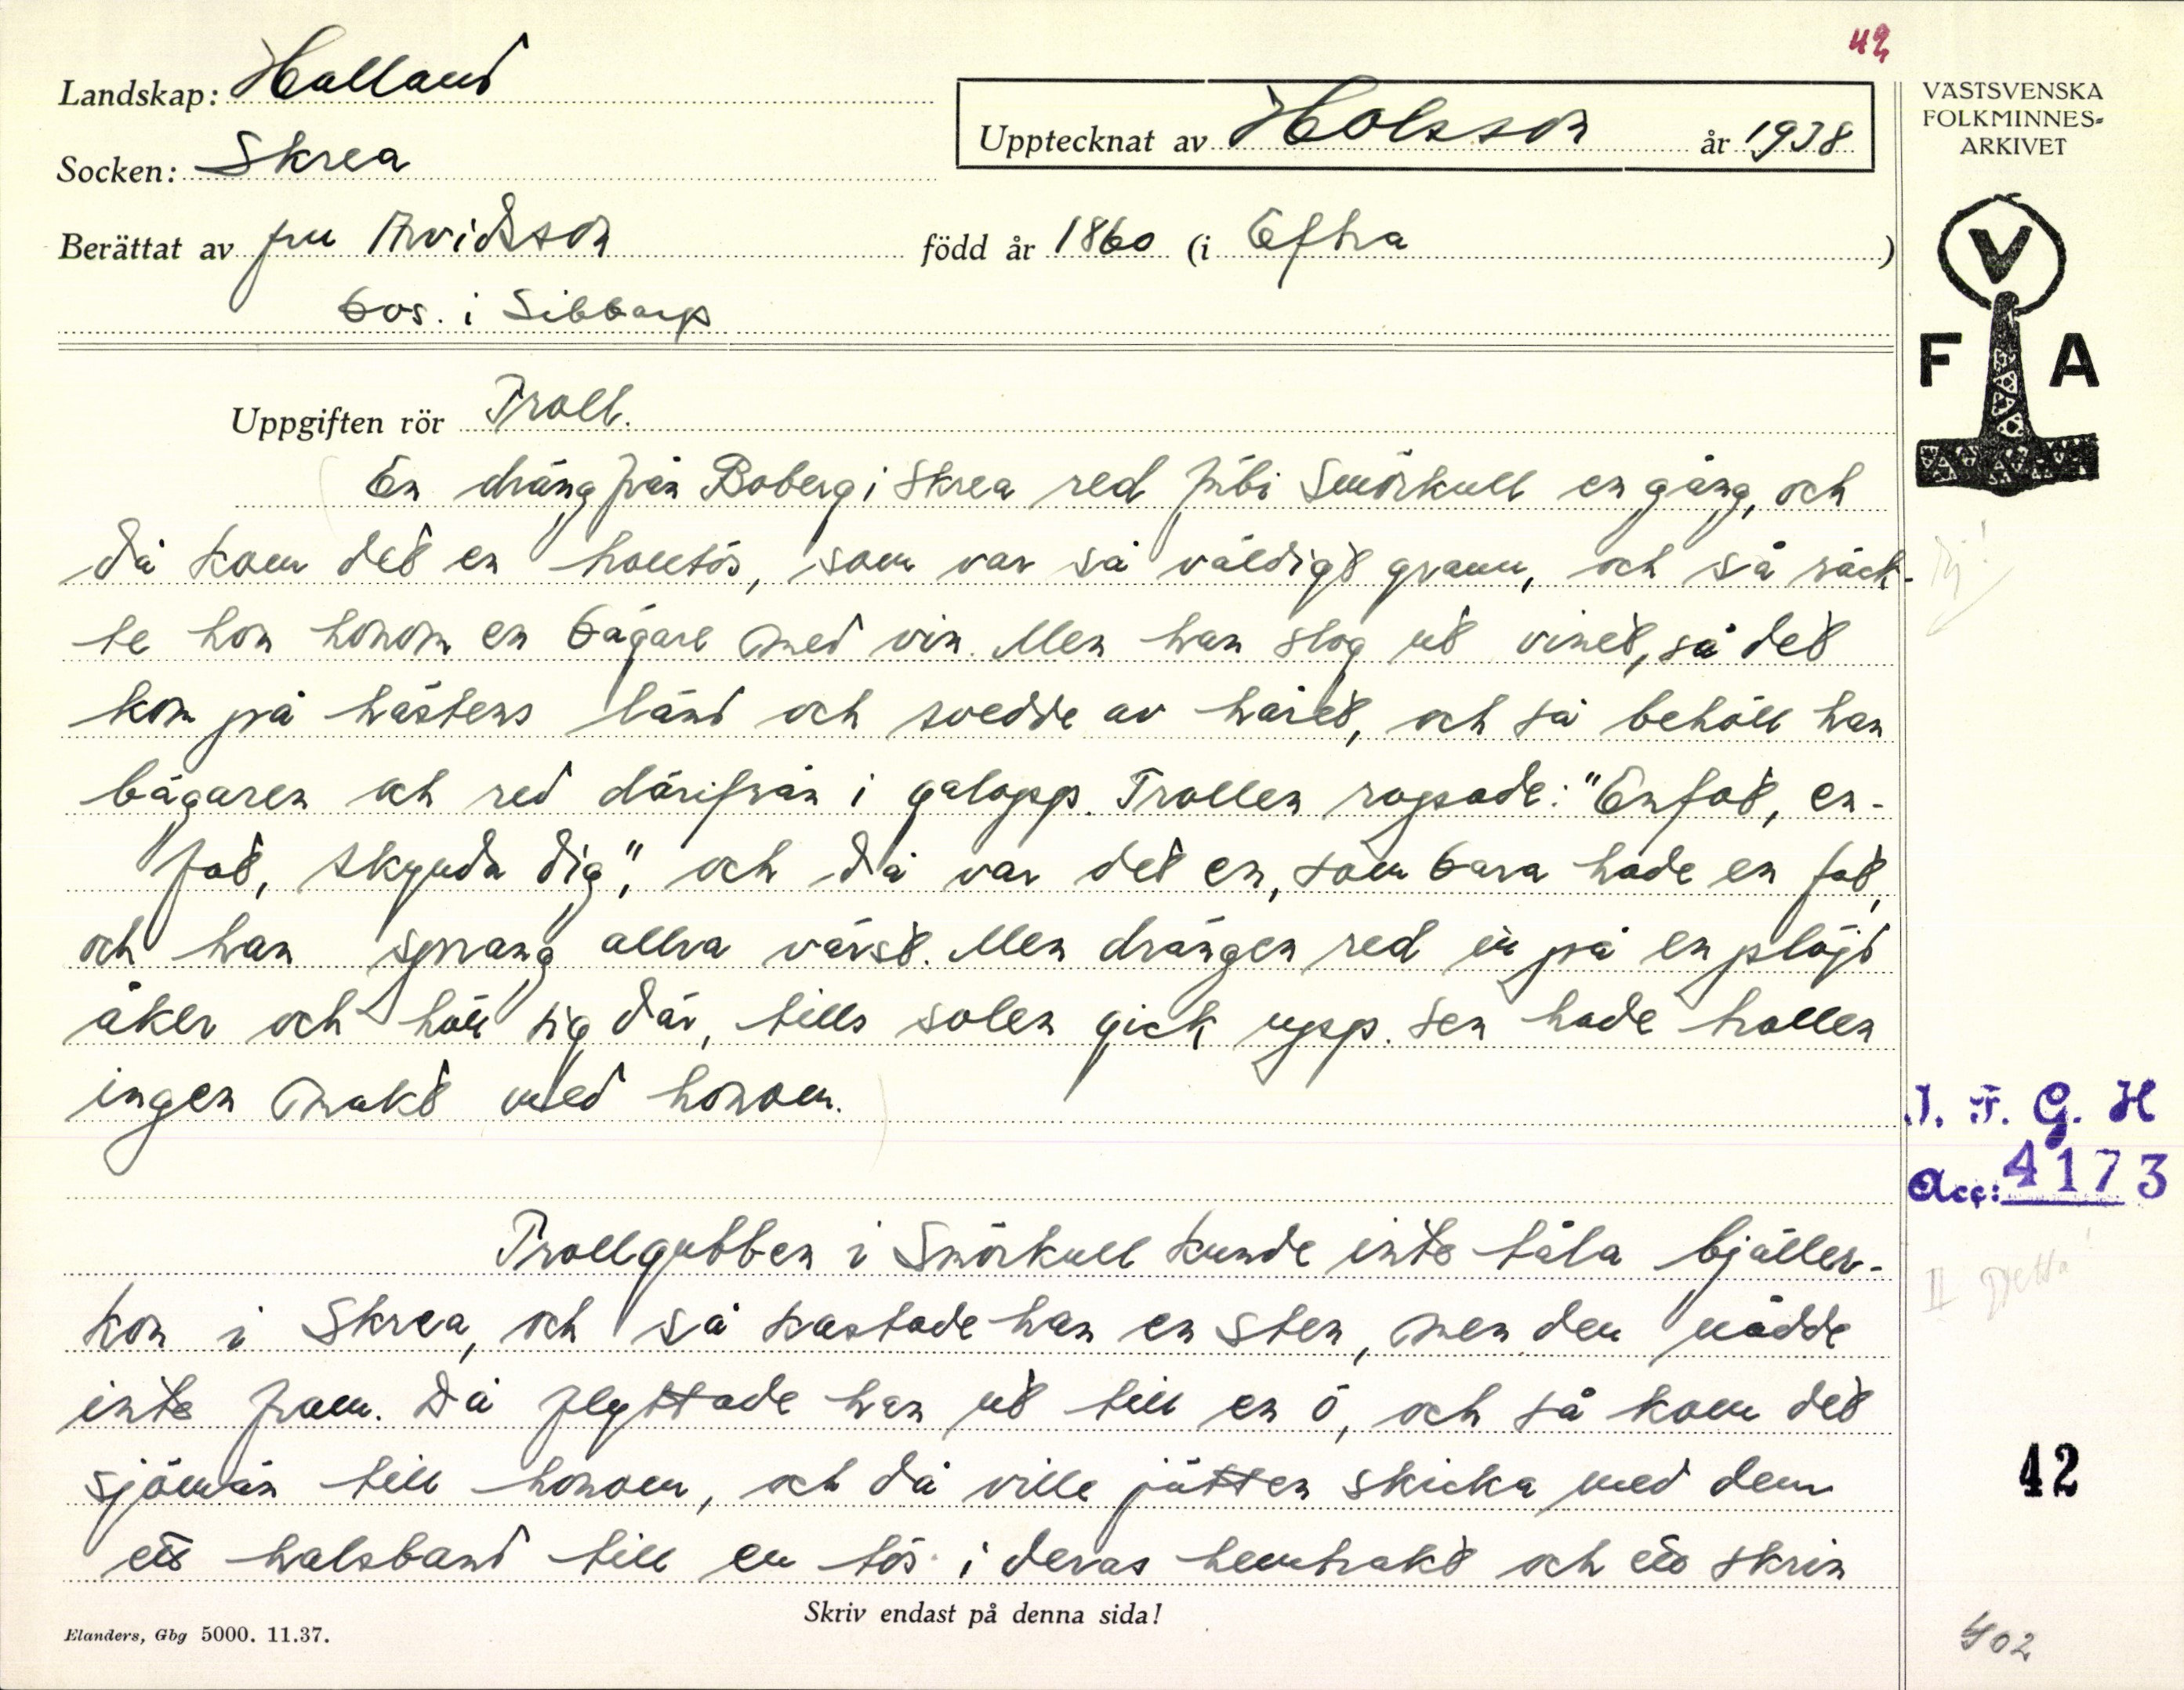 42
Landskap: Halland
Upptecknat av HOlsson år 1938
VÄSTSVENSKA
FOLKMINNES-
ARKIVET
Socken: Skrea
Berättat av fru Arvidsson född år 1860 (i Eftra)
bos. i Sibbarp
V
F A
Uppgiften rör Troll.
En dräng från Boberg i Skrea red förbi Smörkull en gång, och
då kom det en trolltös, som var så väldigt grann, och så räck-
te hon honom en bägare med vin. Men han slog ut vinet, så det
kom på hästens länd och svedde av håret, och så behöll han
bägaren och red därifrån i galopp. Trollen ropade: "Enfot, en-
fot, skynda dig", och då var det en, som bara hade en fot,
och han sprang allra värst. Men drängen red in på en plöjd
åker och höll sig där, tills solen gick upp. Sen hade trollen
ingen makt med honom.
J. F. G. H
Acc: 4173
Trollgubben i Smörkull kunde inte tåla bjäller-
kon i Skrea, och så kastade han en sten, men den nådde
inte fram. Då flyttade han ut till en ö, och så kom det
sjömän till honom, och då ville jätten skicka med dem
ett halsband till en tös i deras hemtrakt och ett skrin
II Detta
42
Skriv endast på denna sida!
Elanders, Gbg 5000. 11.37.
402